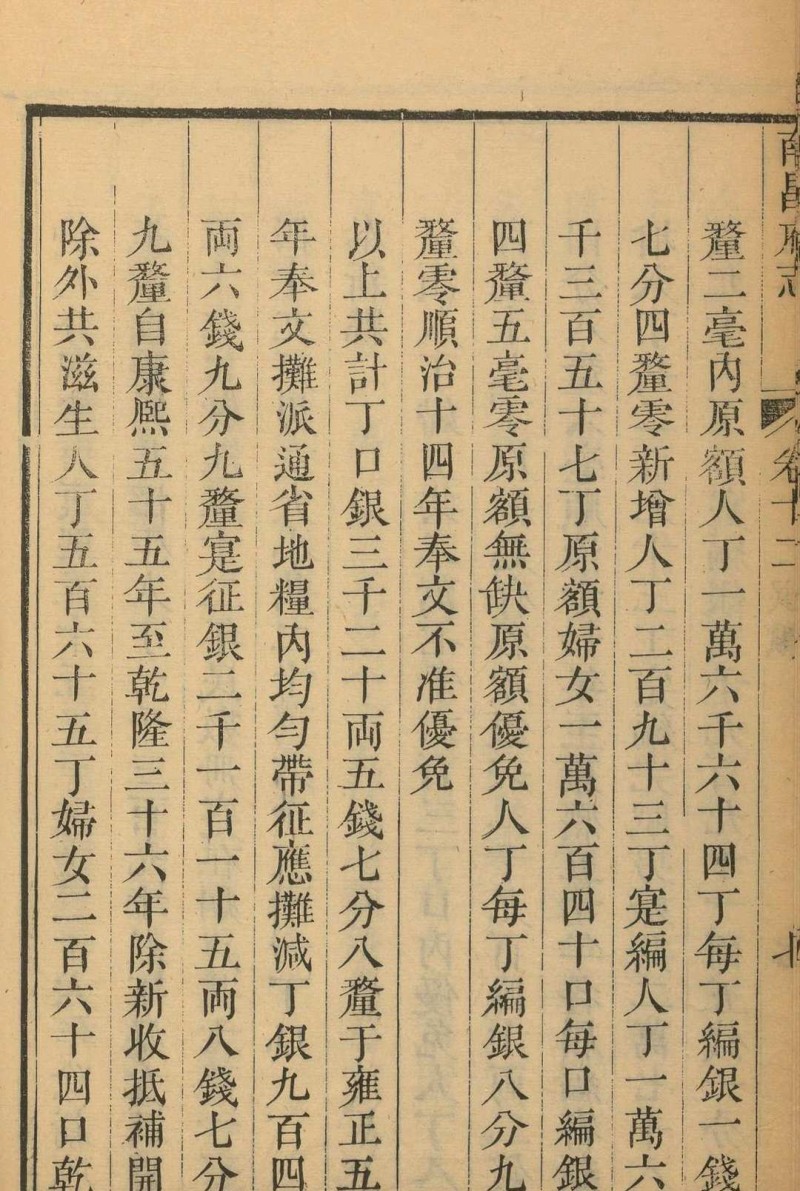 南昌府志
卷十二
釐二毫內原額人丁一萬六千六十四丁每丁編銀一錢
七分四釐零新增人丁二百九十三丁寔編人丁一萬六
千三百五十七丁原額婦女一萬六百四十口每口編銀
四釐五毫零原額無缺原額優免人丁每丁編銀八分九
釐零順治十四年奉文不准優免
以上共計丁口銀三千二十両五錢七分八釐于雍正五
年奉文攤派通省地糧內均勻帶征應攤減丁銀九百四
両六錢九分九釐寔征銀二千一百一十五両八錢七分
九釐自康熙五十五年至乾隆三十六年除新收抵補開
除外共滋生人丁五百六十五丁婦女二百六十四口乾